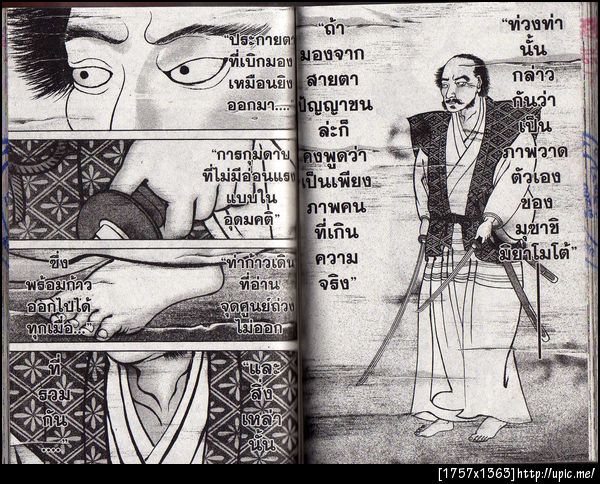 "ท่วงท่า
นั้น
กล่าว
กันว่า
เป็น
ภาพวาด
ตัวเอง
ของ
มุซาชิ
มิยาโมโต้"
"ถ้า
มองจาก
สายตา
ปัญญาชน
ล่ะก็
คงพูดว่า
เป็นเพียง
ภาพคน
ที่เกิน
ความ
จริง"
"ประกายตา
ที่เบิกมอง
เหมือนยิง
ออกมา....
"การกุมดาบ
ที่ไม่มีอ่อนแรง
แบบใน
อุดมคติ"
"ท่าก้าวเดิน
ที่อ่าน
จุดศูนย์ถ่วง
ไม่ออก"
ซึ่ง
พร้อมก้าว
ออกไปได้
ทุกเมื่อ..."
"และ
สิ่ง
เหล่า
นั้น
ที่
รวม
กัน
...."
[1757x1363]http://upic.me/